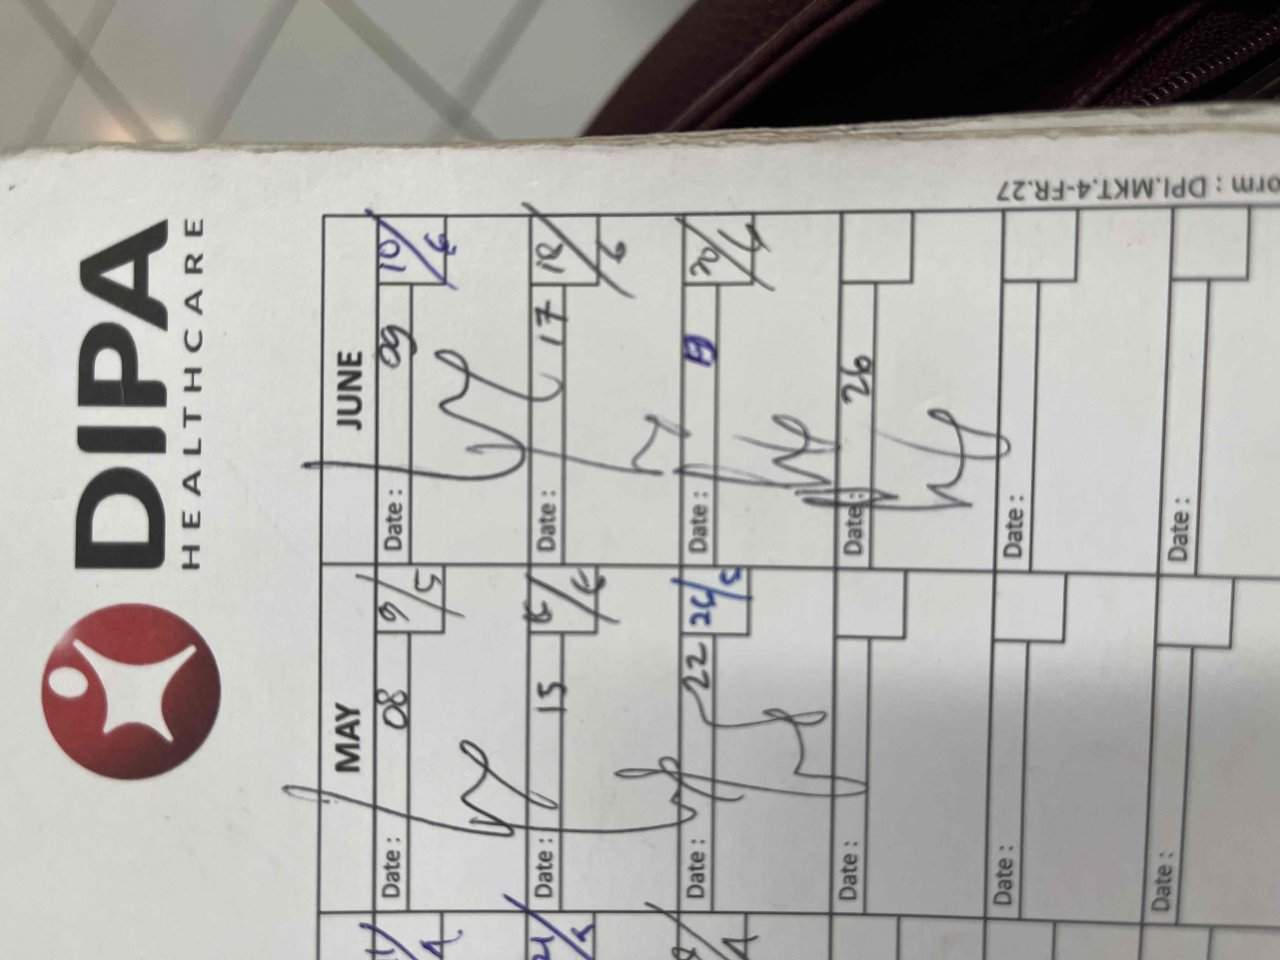 DIPA
HEALTHCARE
orm : DPI.MKT.4-FR.27
MAY JUNE
Date : 08 9/5 Date : 09 10/6
Date : 15 Date : 17 18/6
Date : 22 Date :
Date : Date : 26
Date : Date :
Date : Date :